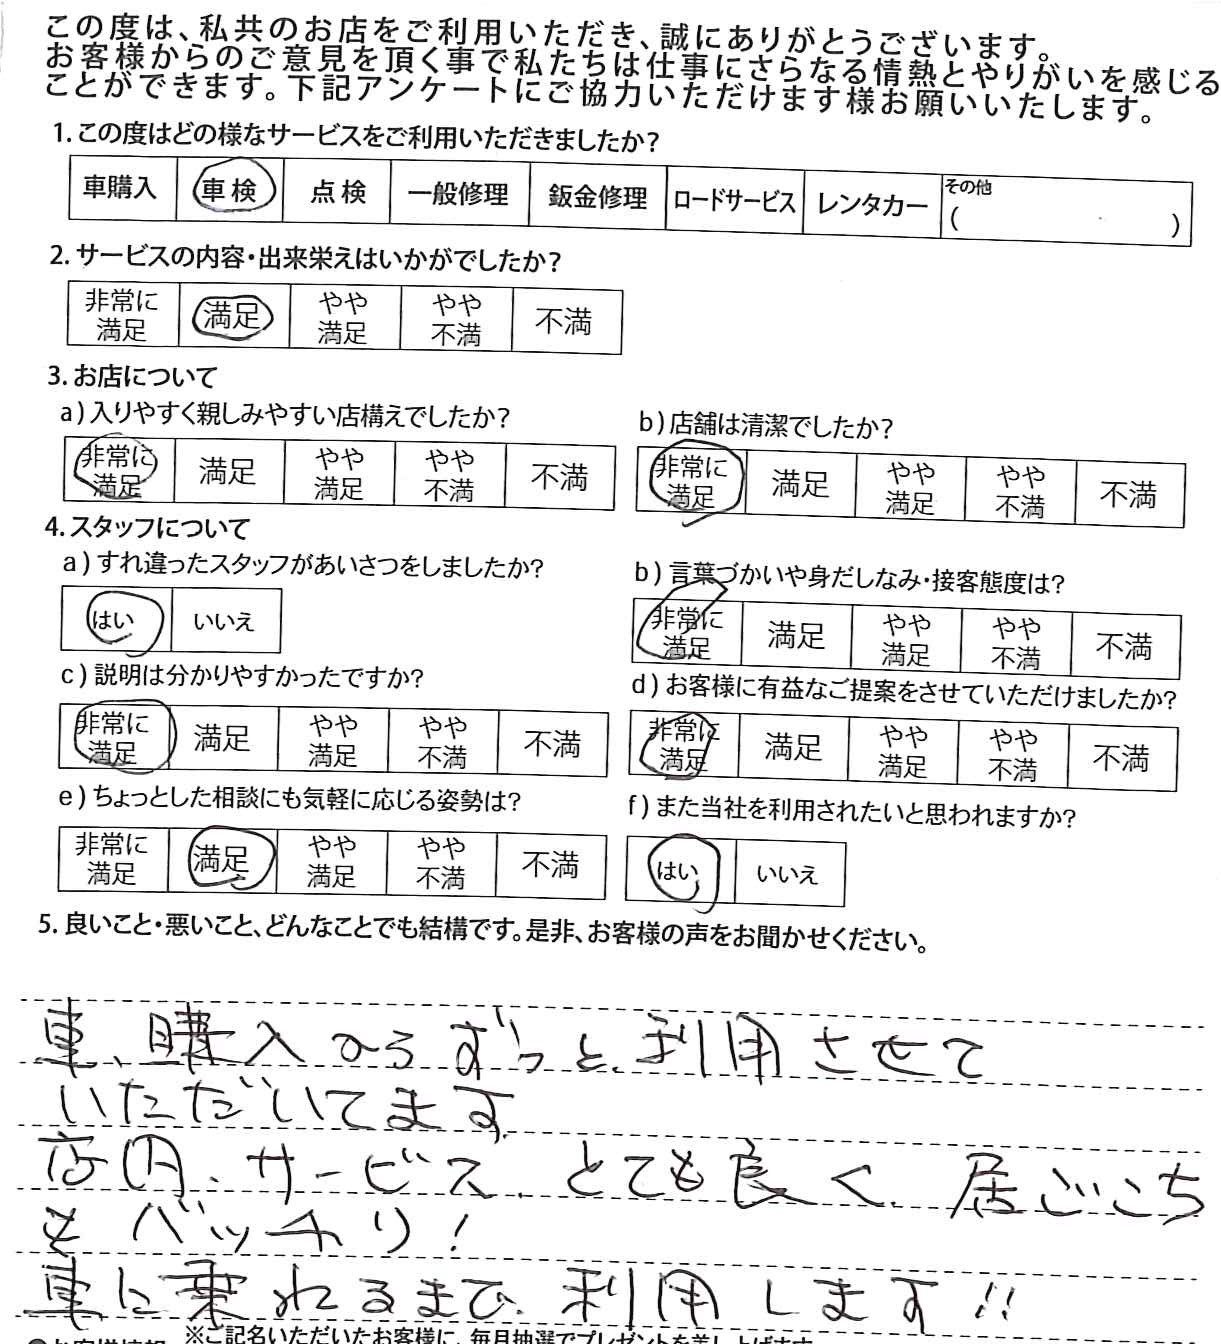 この度は、私共のお店をご利用いただき、誠にありがとうございます。
お客様からのご意見を頂く事で私たちは仕事にさらなる情熱とやりがいを感じる
ことができます。下記アンケートにご協力いただけます様お願いいたします。
1.この度はどの様なサービスをご利用いただきましたか?
車購入 車検 点検 一般修理 鈑金修理 ロードサービス レンタカー その他 ( )
2.サービスの内容・出来栄えはいかがでしたか?
非常に満足 満足 やや満足 やや不満 不満
3.お店について
a)入りやすく親しみやすい店構えでしたか?
非常に満足 満足 やや満足 やや不満 不満
b)店舗は清潔でしたか?
非常に満足 満足 やや満足 やや不満 不満
4.スタッフについて
a)すれ違ったスタッフがあいさつをしましたか?
はい いいえ
b)言葉づかいや身だしなみ・接客態度は?
非常に満足 満足 やや満足 やや不満 不満
c)説明は分かりやすかったですか?
非常に満足 満足 やや満足 やや不満 不満
d)お客様に有益なご提案をさせていただけましたか?
非常に満足 満足 やや満足 やや不満 不満
e)ちょっとした相談にも気軽に応じる姿勢は?
非常に満足 満足 やや満足 やや不満 不満
f)また当社を利用されたいと思われますか?
はい いいえ
5.良いこと・悪いこと、どんなことでも結構です。是非、お客様の声をお聞かせください。
車、購入からずっと、利用させて
いただいてます。
店内、サービス、とても良く、居ごこち
もバッチリ!
車に乗れるまで、利用します!!
●お客様情報 ※ご記名いただいたお客様に、毎月抽選でプレゼントを差し上げます